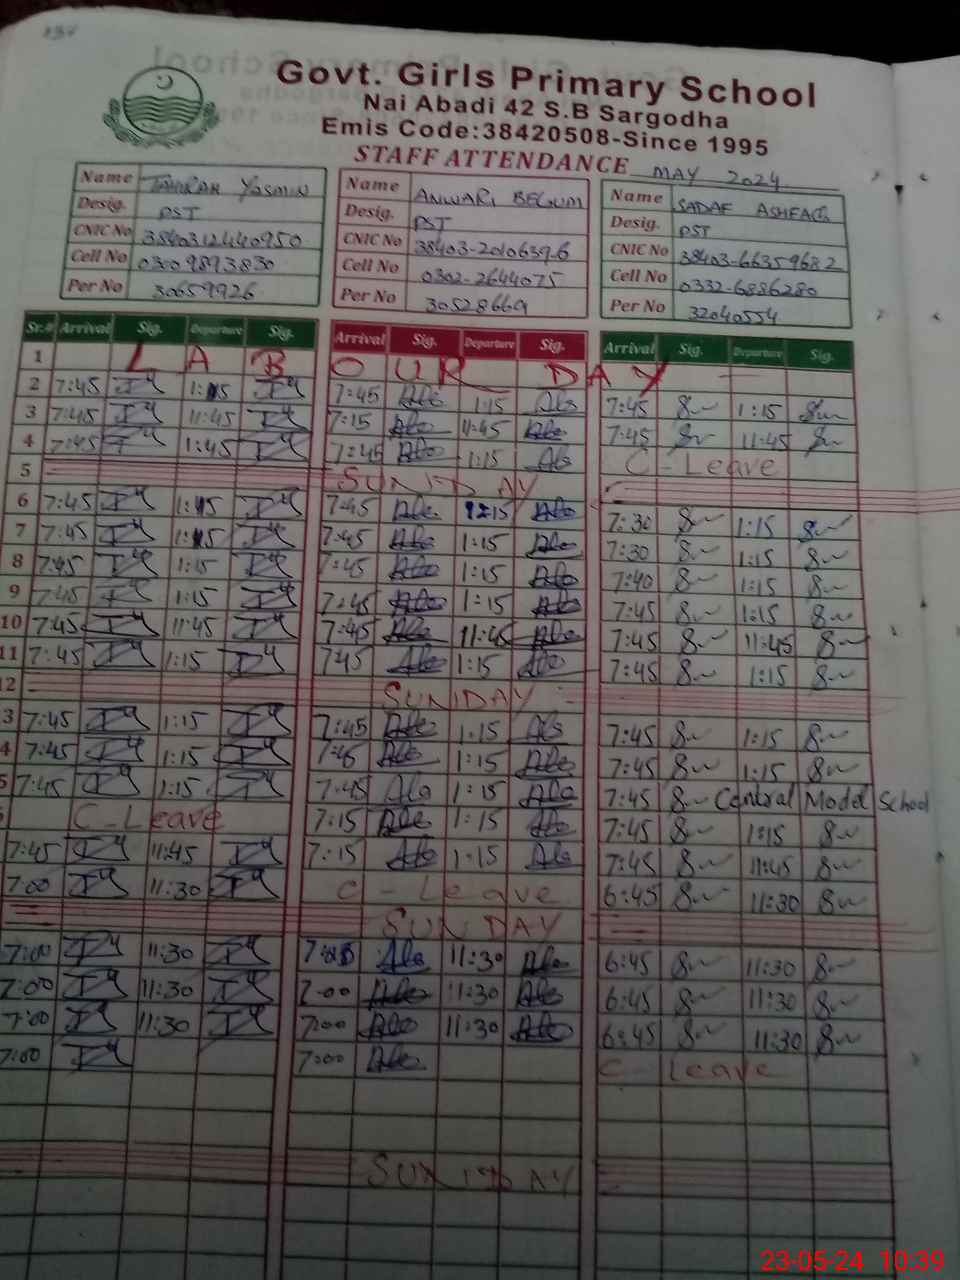 Govt. Girls Primary School
Nai Abadi 42 S.B Sargodha
Emis Code:38420508-Since 1995
STAFF ATTENDANCE MAY 2024
Name TAHIRAH YASMIN Name ANWARI BEGUM Name SADAF ASHFAQ
Desig. PST Desig. PST Desig. PST
CNIC No 3840312440950 CNIC No 38403-2010639-6 CNIC No 38403-6635968 2
Cell No 03009893830 Cell No 0302-2644075 Cell No 0332-6886280
Per No 30659926 Per No 30528669 Per No 32040554
Sr.# Arrival Sig. Departure Sig. Arrival Sig. Departure Sig. Arrival Sig. Departure Sig.
1 L A B O U R D A Y
2 7:45 1:15 7:45 1:15 7:45 1:15
3 7:45 11:45 7:15 11:45 7:45 11:45
4 7:45 1:45 7:45 1:15 C-Leave
5 SUNDAY
6 7:45 1:15 7:45 1:15 7:30 1:15
7 7:45 1:15 7:45 1:15 7:30 1:15
8 7:45 1:15 7:45 1:15 7:40 1:15
9 7:45 1:15 7:45 1:15 7:45 1:15
10 7:45 11:45 7:45 11:45 7:45 11:45
11 7:45 1:15 7:45 1:15 7:45 1:15
12 SUNDAY
3 7:45 1:15 7:45 1:15 7:45 1:15
4 7:45 1:15 7:45 1:15 7:45 1:15
5 7:45 1:15 7:45 1:15 7:45 Central Model School
C-Leave 7:15 1:15 7:45 1:15
7:45 11:45 7:15 1:15 7:45 11:45
7:00 11:30 C-Leave 6:45 11:30
SUNDAY
7:00 11:30 11:30 6:45 11:30
7:00 11:30 7:00 11:30 6:45 11:30
7:00 11:30 7:00 11:30 6:45 11:30
7:00 7:00 C-Leave
SUNDAY
23-05-24 10:39